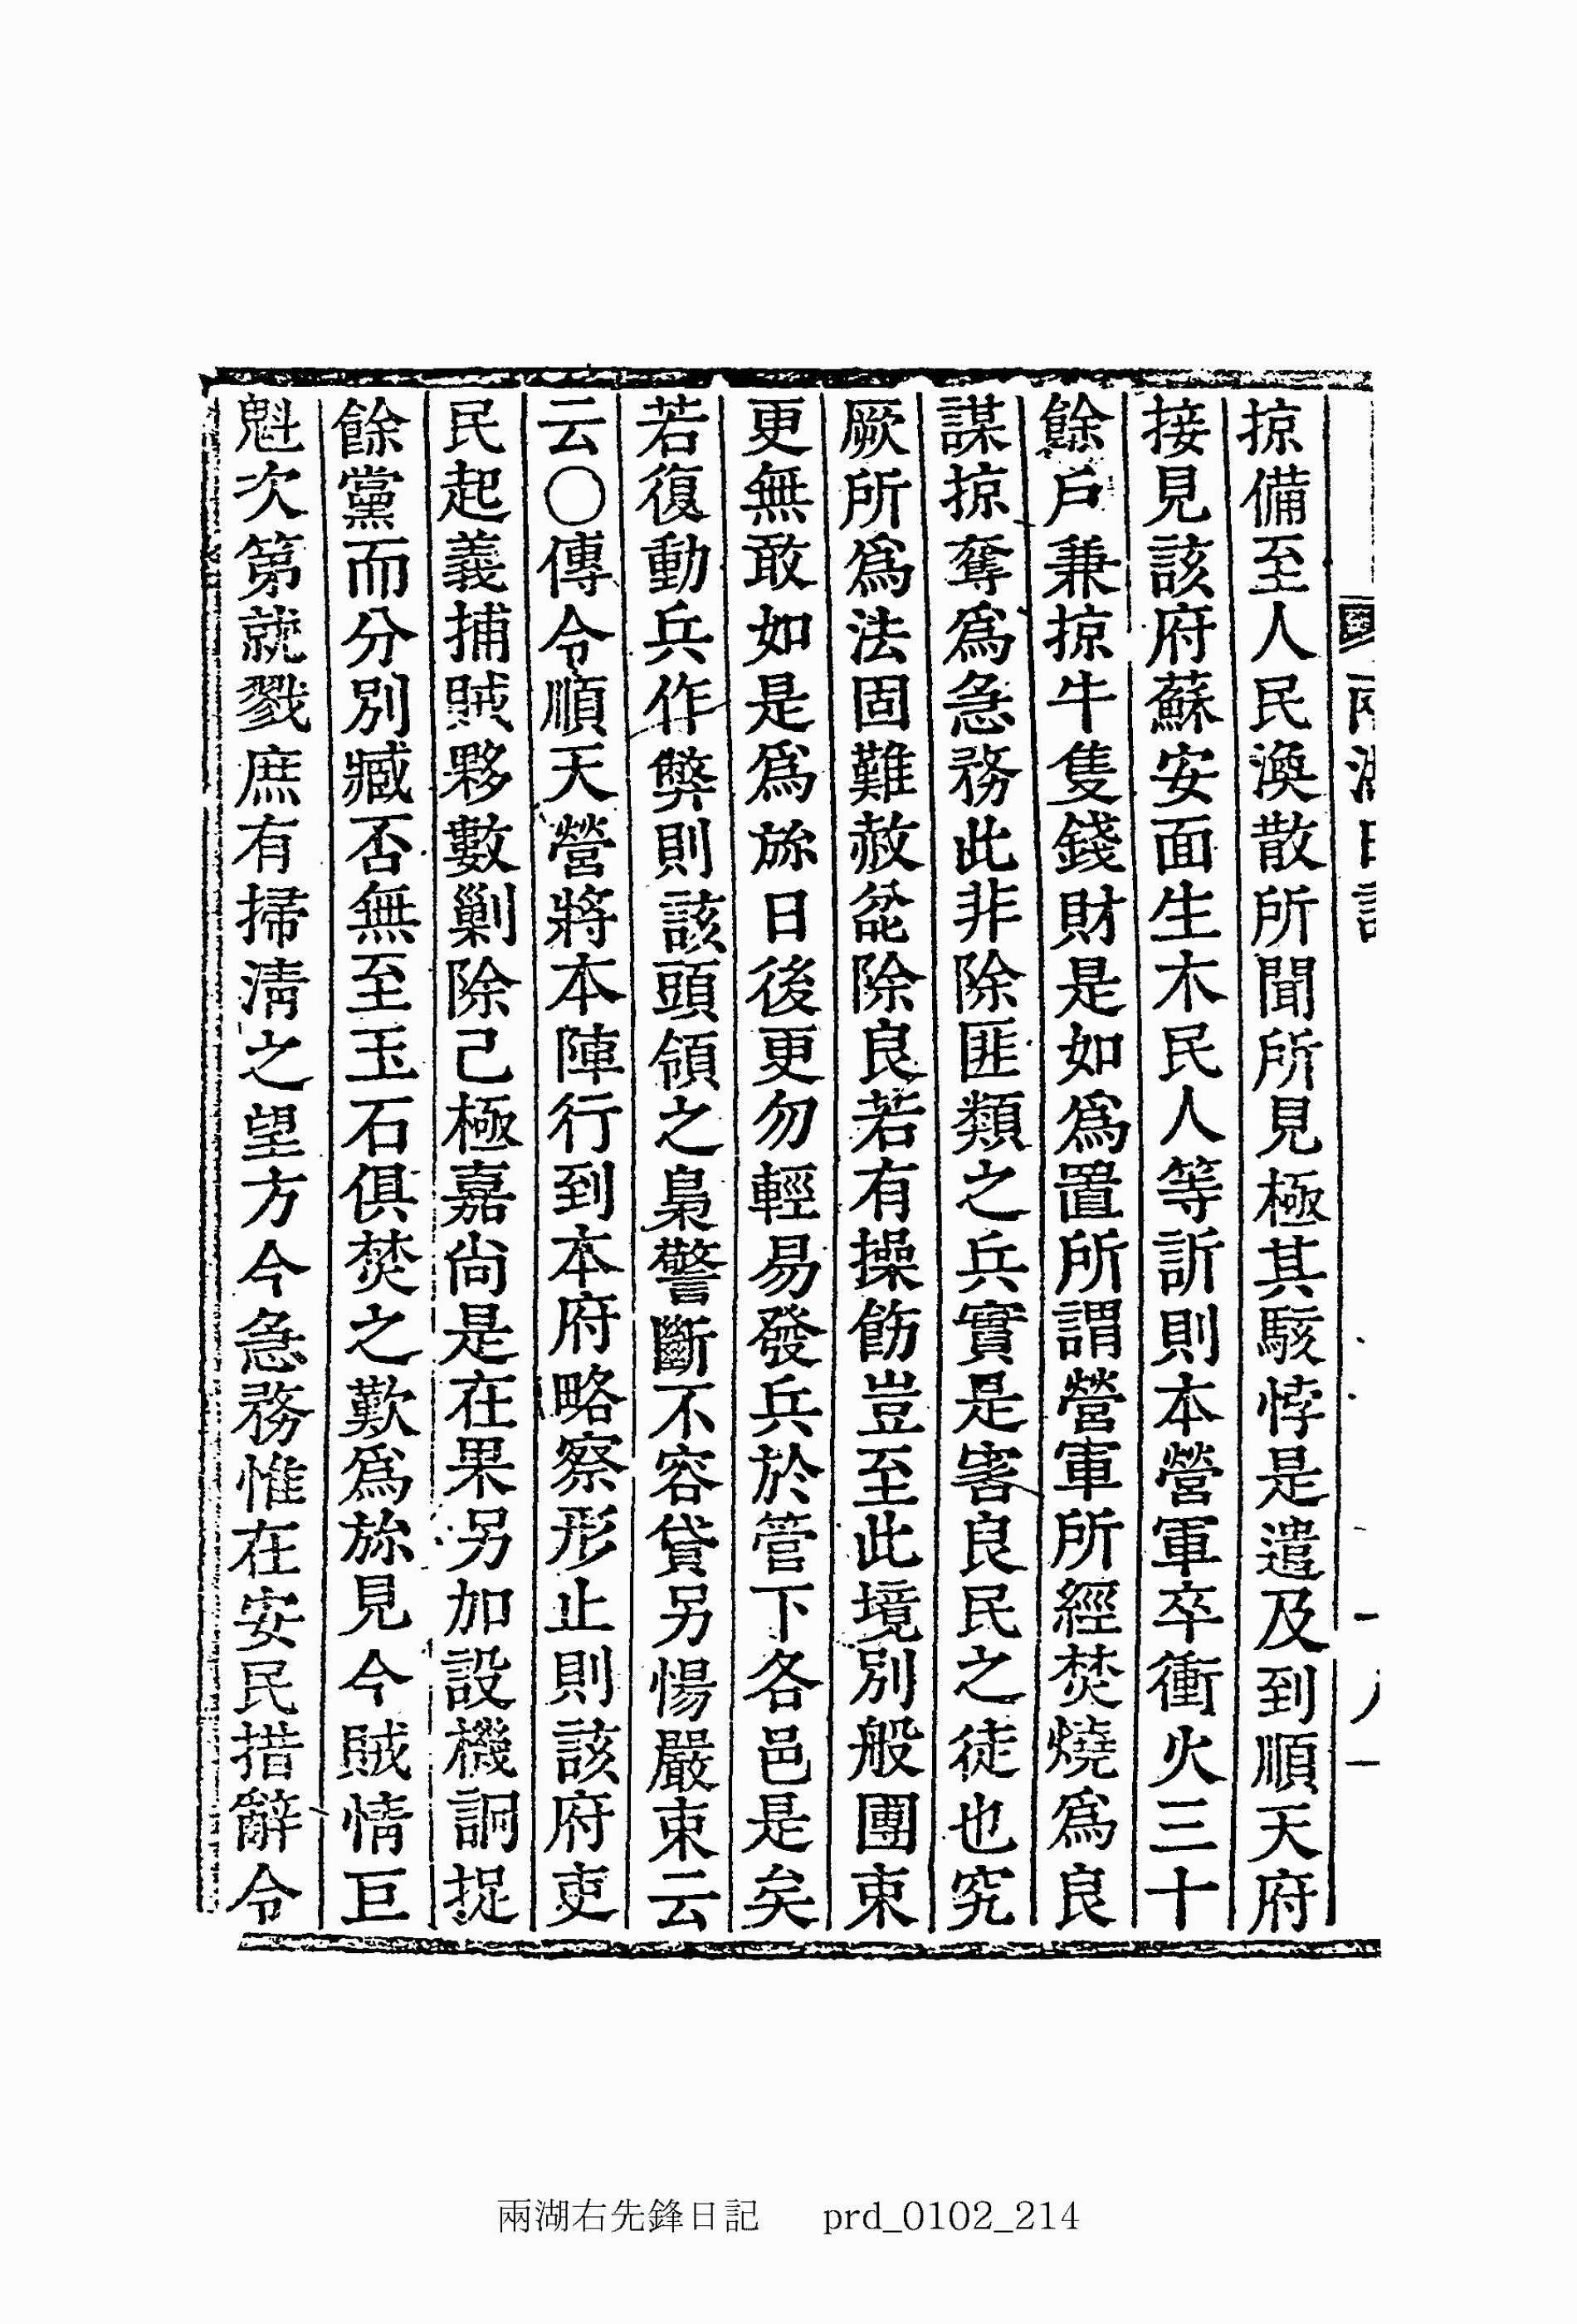 掠備至人民渙散所聞所見極其駭悖是遣及到順天府
接見該府蘇安面生木民人等訴則本營軍卒衝火三十
餘戶兼掠牛隻錢財是如爲置所謂營軍所經焚燒爲良
謀掠奪爲急務此非除匪類之兵實是害良民之徒也究
厥所爲法固難赦忿除良若有操飭豈至此境別般團束
更無敢如是爲旀日後更勿輕易發兵於管下各邑是矣
若復動兵作弊則該頭領之梟警斷不容貸另惕嚴束云
云○傳令順天營將本陣行到本府略察形止則該府吏
民起義捕賊夥數剿除己極嘉尙是在果另加設機詗捉
餘黨而分別臧否無至玉石俱焚之歎爲旀見今賊情巨
魁次第就戮庶有掃淸之望方今急務惟在安民措辭令
兩湖右先鋒日記 prd_0102_214